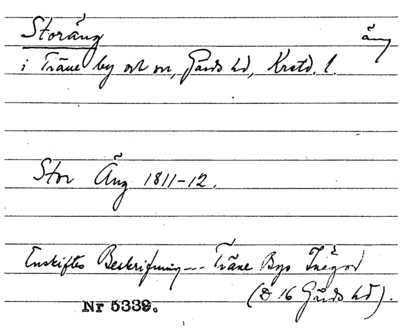 Storäng äng
i Träne by och sn, Gärds hd, Kristd. l.
Stor Äng 1811-12.
Enskiftes Beskrifning -- Träne Bys Inägor
(D 16 Gärds hd).
Nr 5339.